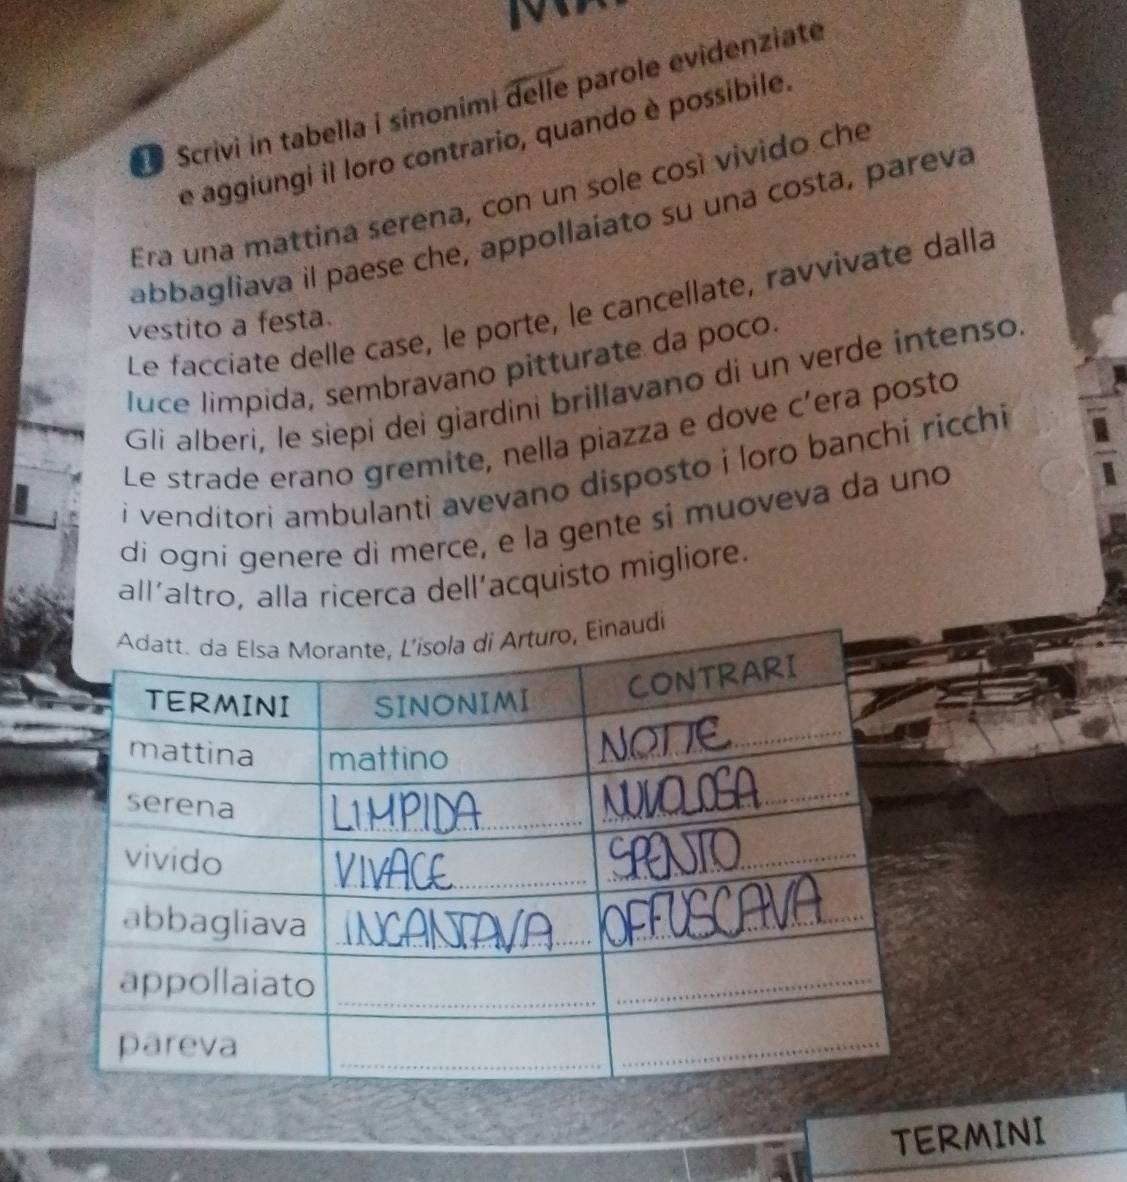 1 Scrivi in tabella i sinonimi delle parole evidenziate
e aggiungi il loro contrario, quando è possibile.
Era una mattina serena, con un sole così vivido che
abbagliava il paese che, appollaiato su una costa, pareva
vestito a festa.
Le facciate delle case, le porte, le cancellate, ravvivate dalla
luce limpida, sembravano pitturate da poco.
Gli alberi, le siepi dei giardini brillavano di un verde intenso.
Le strade erano gremite, nella piazza e dove c'era posto
i venditori ambulanti avevano disposto i loro banchi ricchi
di ogni genere di merce, e la gente si muoveva da uno
all'altro, alla ricerca dell'acquisto migliore.
Adatt. da Elsa Morante, L'isola di Arturo, Einaudi
TERMINI SINONIMI CONTRARI
mattina mattino NOTTE
serena LIMPIDA NUVOLOSA
vivido VIVACE SPENTO
abbagliava INCANTAVA OFFUSCAVA
appollaiato
pareva
TERMINI